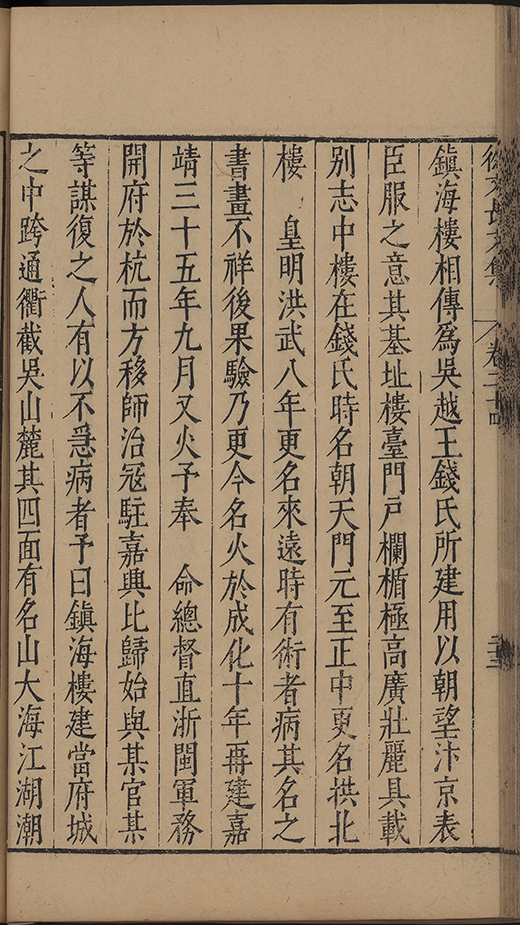 徐文長文集 卷二十 二十三
鎮海樓相傳爲吳越王錢氏所建用以朝望汴京表
臣服之意其基址樓臺門戶欄楯極高廣壯麗具載
别志中樓在錢氏時名朝天門元至正中更名拱北
樓 皇明洪武八年更名來遠時有術者病其名之
書畫不祥後果驗乃更今名火於成化十年再建嘉
靖三十五年九月又火予奉 命總督直浙閩軍務
開府於杭而方移師治寇駐嘉興比歸始與某官某
等謀復之人有以不急病者予曰鎮海樓建當府城
之中跨通衢截吳山麓其四面有名山大海江湖潮